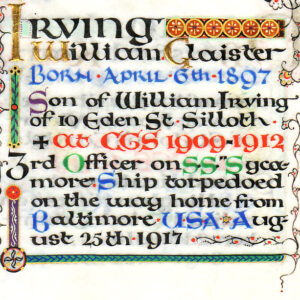 Irving
William. Glaister
Born. April. 6th. 1897
Son of William Irving
of 10 Eden St. Silloth.
+ at CGS 1909-1912
3rd Officer on SS "Syca
more. Ship torpedoed
on the way home from
Baltimore. U.S.A. Aug-
ust 25th. 1917